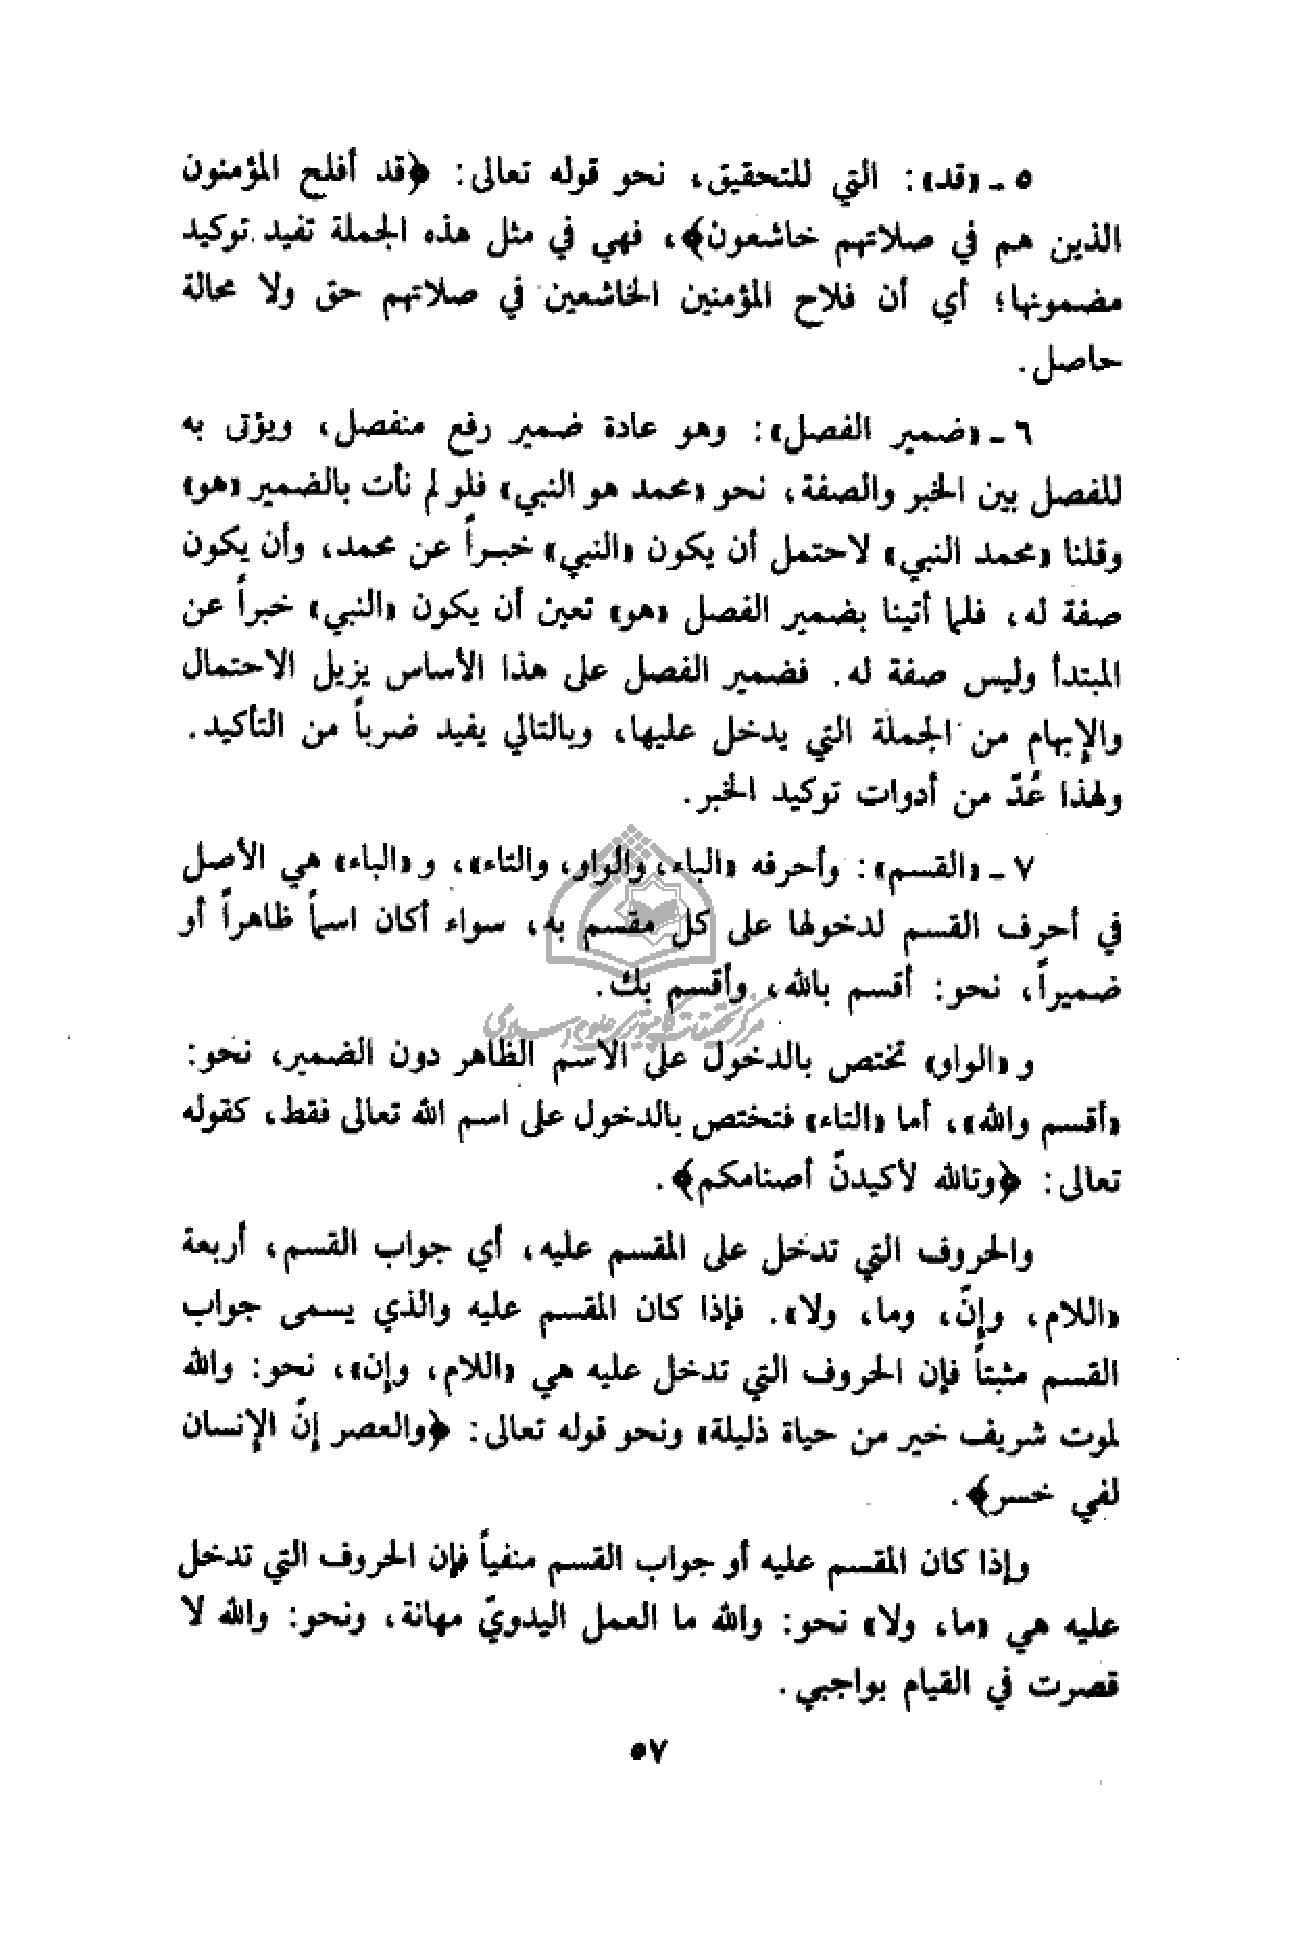 ٥ ـ «قد»: التي للتحقيق، نحو قوله تعالى: ﴿قد أفلح المؤمنون
الذين هم في صلاتهم خاشعون﴾، فهي في مثل هذه الجملة تفيد توكيد
مضمونها؛ أي أن فلاح المؤمنين الخاشعين في صلاتهم حق ولا محالة
حاصل.
٦ ـ «ضمير الفصل»: وهو عادة ضمير رفع منفصل، ويؤتى به
للفصل بين الخبر والصفة، نحو «محمد هو النبي» فلو لم نأت بالضمير «هو»
وقلنا «محمد النبي» لاحتمل أن يكون «النبي» خبراً عن محمد، وأن يكون
صفة له، فلما أتينا بضمير الفصل «هو» تعين أن يكون «النبي» خبراً عن
المبتدأ وليس صفة له. فضمير الفصل على هذا الأساس يزيل الاحتمال
والإبهام من الجملة التي يدخل عليها، وبالتالي يفيد ضرباً من التأكيد.
ولهذا عُدّ من أدوات توكيد الخبر.
٧ ـ «القسم»: وأحرفه «الباء، والواو، والتاء»، و «الباء» هي الأصل
في أحرف القسم لدخولها على كل مقسم به، سواء أكان اسماً ظاهراً أو
ضميراً، نحو: أقسم بالله، وأقسم بك.
مرکز تحقیقات کامپیوتری علوم اسلامی
و «الواو» تختص بالدخول على الاسم الظاهر دون الضمير، نحو:
«أقسم والله»، أما «التاء» فتختص بالدخول على اسم الله تعالى فقط، كقوله
تعالى: ﴿وتالله لأكيدنّ أصنامكم﴾.
والحروف التي تدخل على المقسم عليه، أي جواب القسم، أربعة
«اللام، وإنّ، وما، ولا». فإذا كان المقسم عليه والذي يسمى جواب
القسم مثبتاً فإن الحروف التي تدخل عليه هي «اللام، وإن»، نحو: والله
لموت شريف خير من حياة ذليلة» ونحو قوله تعالى: ﴿والعصر إنّ الإنسان
لفي خسر﴾.
وإذا كان المقسم عليه أو جواب القسم منفياً فإن الحروف التي تدخل
عليه هي «ما، ولا» نحو: والله ما العمل اليدويّ مهانة، ونحو: والله لا
قصرت في القيام بواجبي.
٥٧